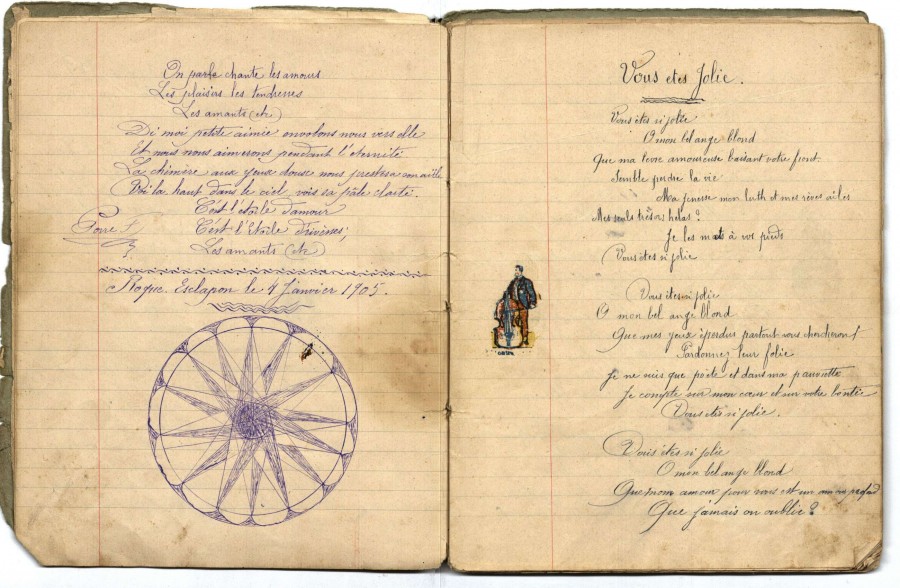 On parle chante les amours
Les plaisirs les tendresses
Les amants (etc)
Di moi petite aimée envolons nous vers elle
Et nous nous aimerons pendant l'eternité.
La chimère aux yeux douse nous prestera son aile
Voi la haut dans le ciel, vois sa pâle clarté.
C'est l'étoile d'amour
C'est l'Etoile d'ivresses;
Les amants (etc)
Roque. Esclapon le 4 Janvier 1905.
Vous etes Jolie.
Vous êtes si jolie
O mon bel ange blond
Que ma levre amoureuse baisant votre front.
Semble perdre la vie
Ma jenesse mon luth et mes rêves ailés
Mes seuls trésors helas?
Je les mets à vos pieds
Vous êtes si jolie
Vous êtes si jolie
O mon bel ange blond
Que mes yeux éperdus partout vous chercheront!
Pardonnez leur folie
Je ne suis que poëte et dans ma pauvrette
Je compte sur mon cœur et sur votre bontée
Vous êtes si jolie.
Vous êtes si jolie
O mon bel ange blond
Que mon amour pour vous est un amour profond
Que jamais on oublie?